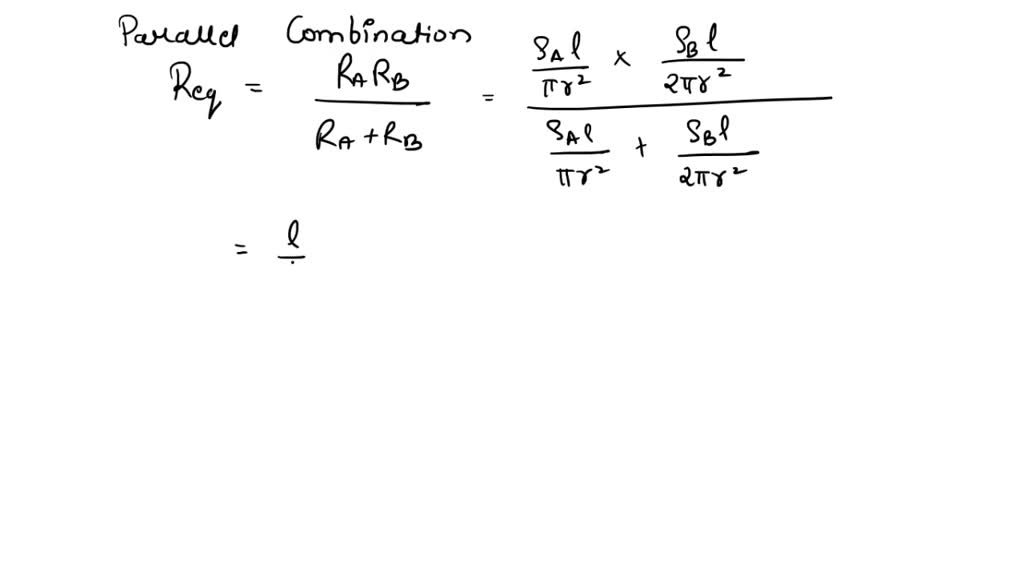 Parallel Combination
Req = RA RB / RA + RB = (SA l / πr² × SB l / 2πr²) / (SA l / πr² + SB l / 2πr²)
= l /